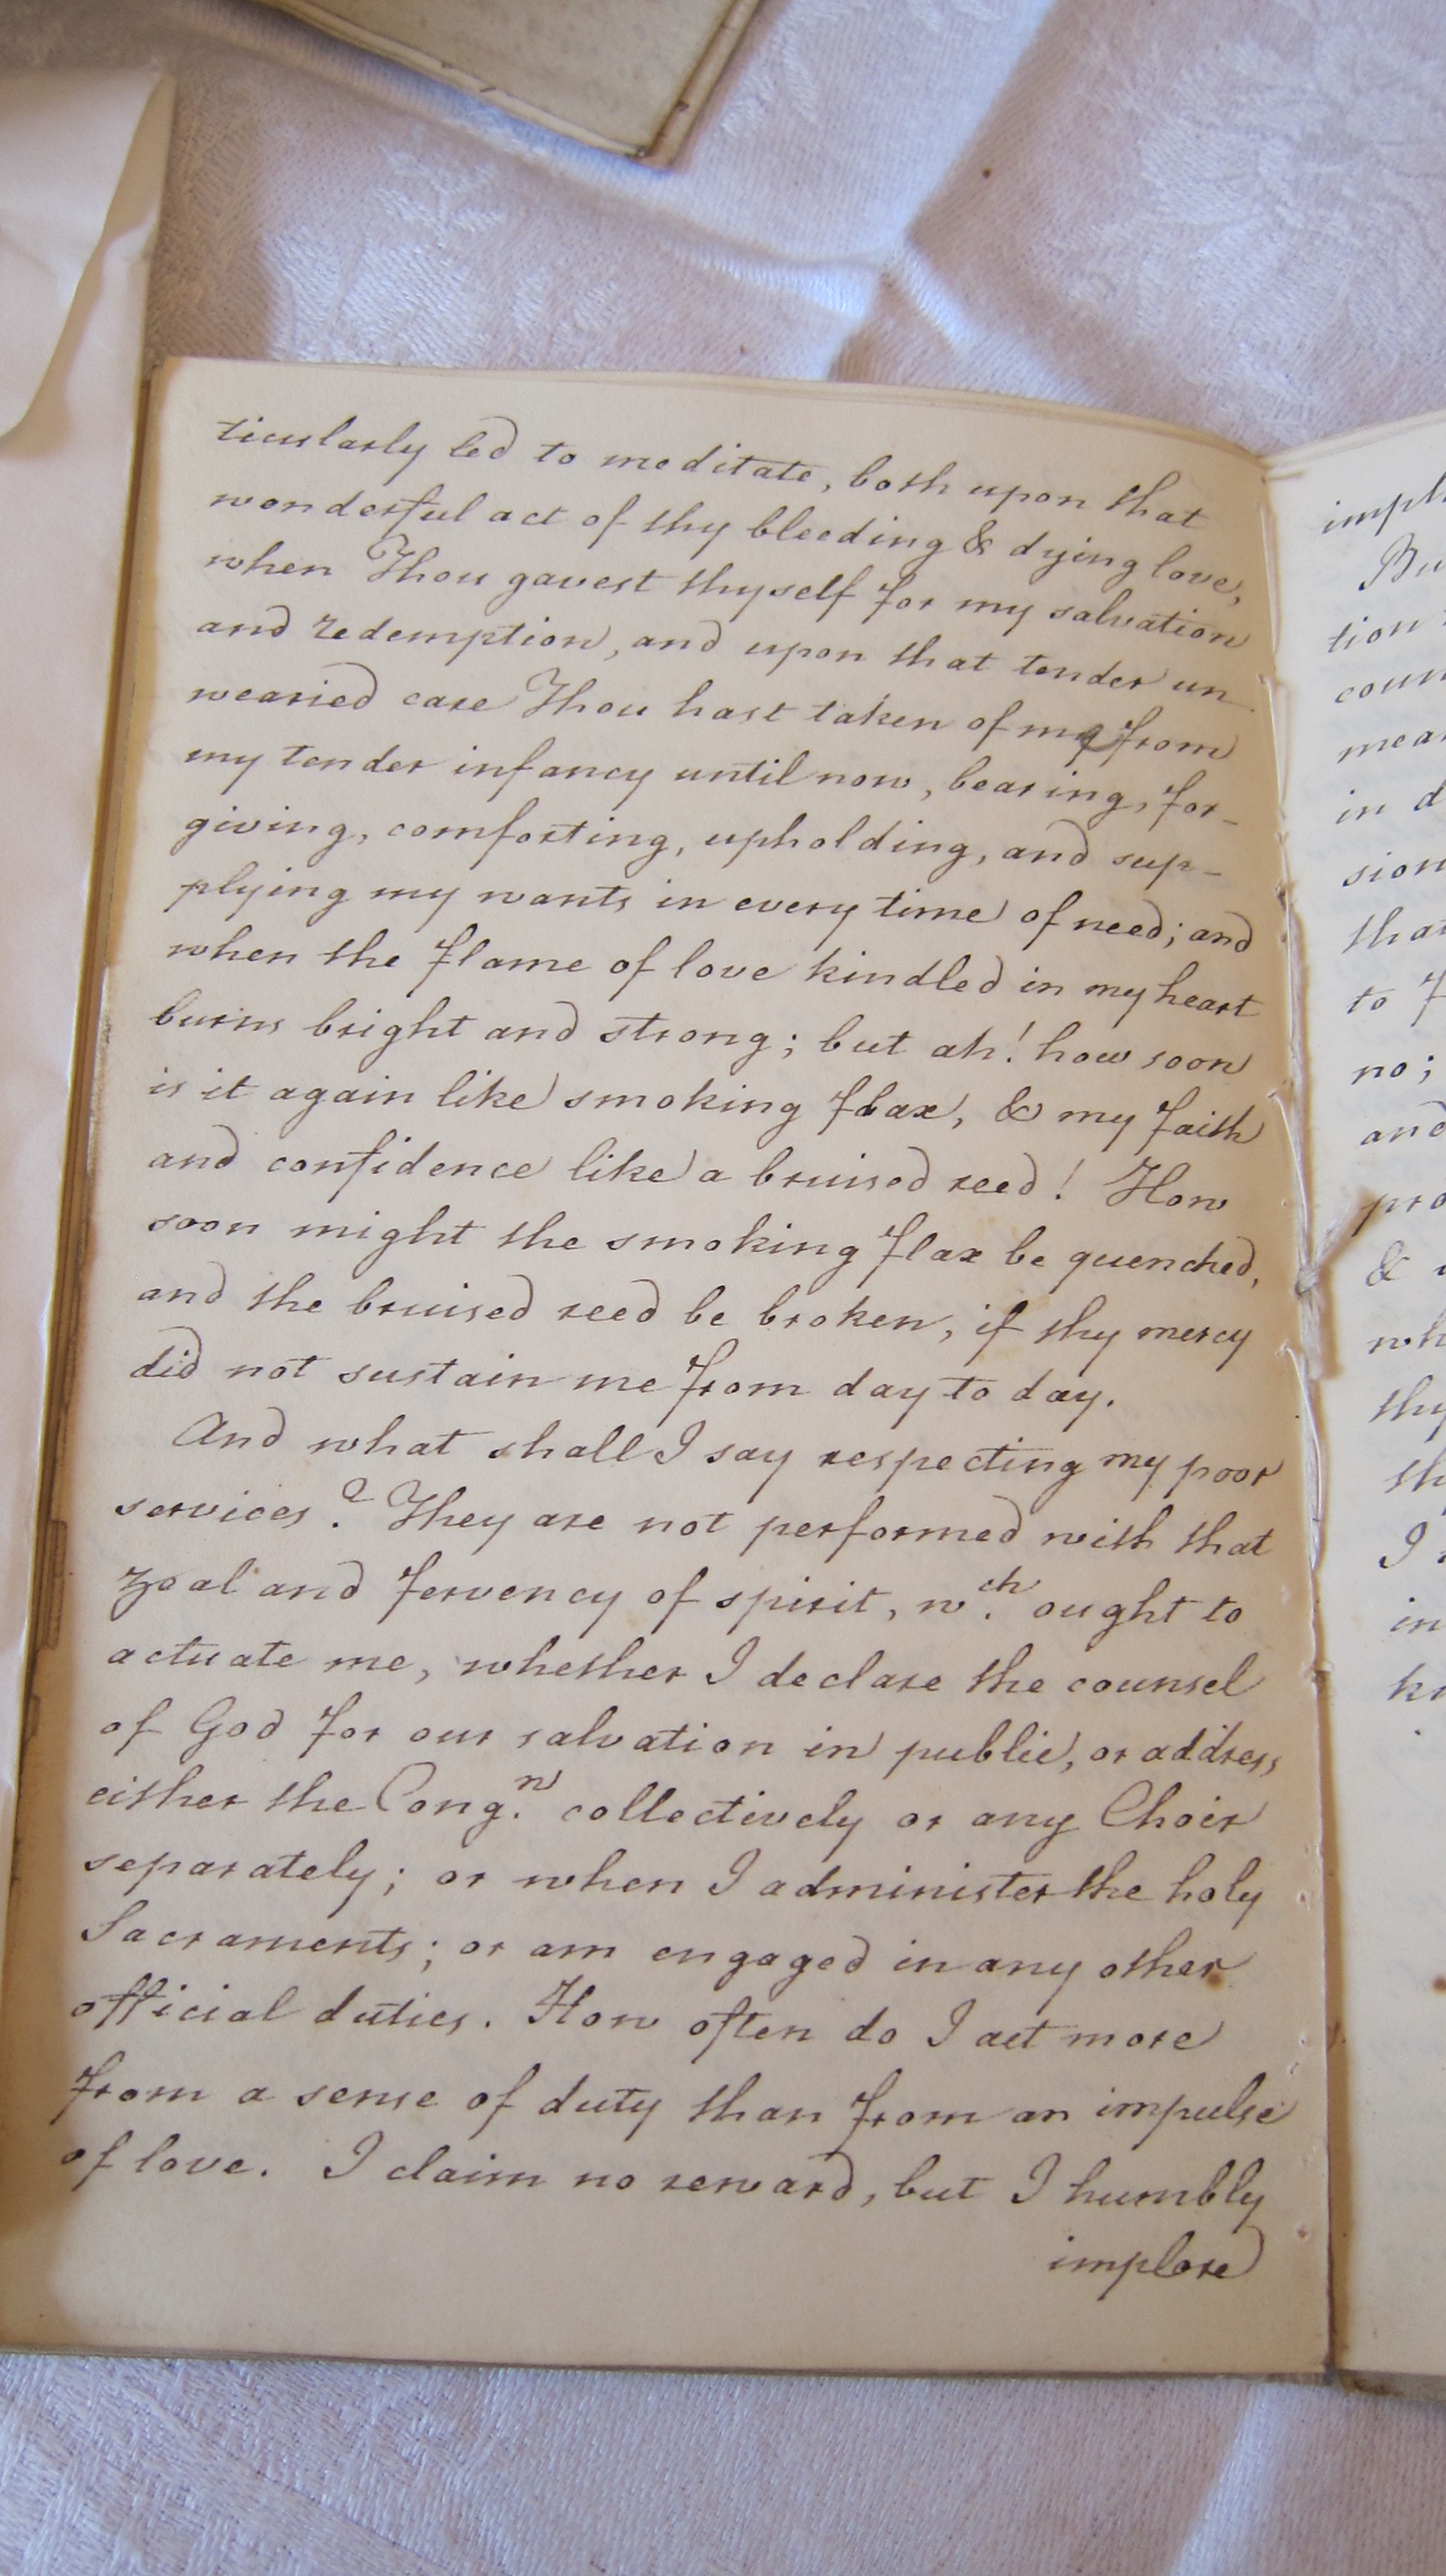 ticularly led to meditate, both upon that
wonderful act of thy bleeding & dying love,
when Thou gavest thyself for my salvation
and redemption, and upon that tender un
wearied care Thou hast taken of me from
my tender infancy until now, bearing, for-
giving, comforting, upholding, and sup-
plying my wants in every time of need; and
when the flame of love kindled in my heart
burns bright and strong; but ah! how soon
is it again like smoking flax, & my faith
and confidence like a bruised reed! How
soon might the smoking flax be quenched,
and the bruised reed be broken, if thy mercy
did not sustain me from day to day.
And what shall I say respecting my poor
services? They are not performed with that
zeal and fervency of spirit, w.ch ought to
actuate me, whether I declare the counsel
of God for our salvation in public, or address
either the Cong.n collectively or any Choir
separately; or when I administer the holy
Sacraments; or am engaged in any other
official duties. How often do I act more
from a sense of duty than from an impulse
of love. I claim no reward, but I humbly
implore
impl
Bu
tion
coun
mea
in d
sion
tha
to f
no;
and
pro
&
wh
thy
th
I
in
kn